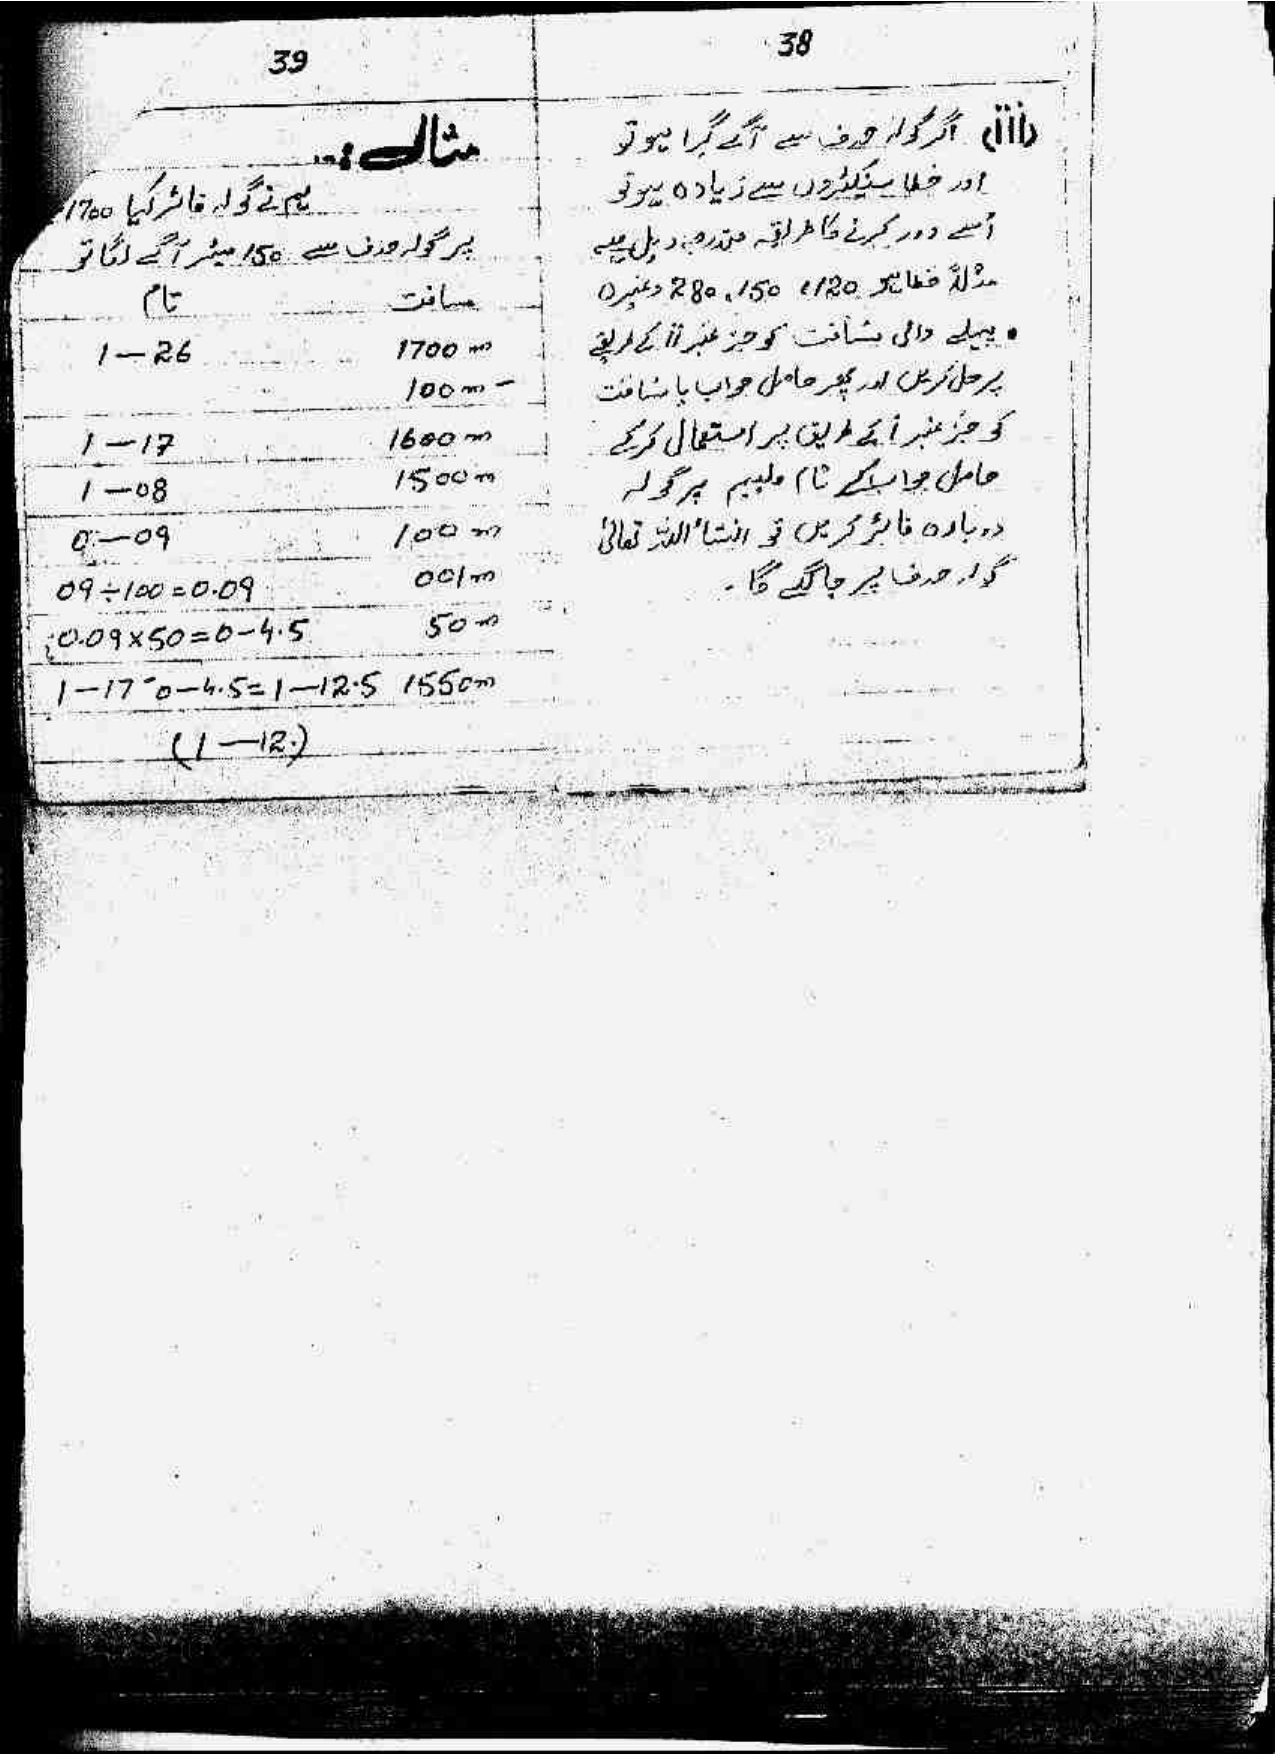 38
(iii) اگر گولہ ہدف سے آگے گرا ہو تو
اور خطا سینکڑوں سے زیادہ ہو تو
اُسے دور کرنے کا طریقہ مندرجہ ذیل ہے
مثلاً خطا ہو 120، 150، 280 وغیرہ
• پہلے والی مسافت کو جز نمبر ii کے طریقے
پر حل کریں اور پھر حاصل جواب یا مسافت
کو جز نمبر i کے طریق پر استعمال کر کے
حاصل جواب کے تام پر گولہ
دوبارہ فائر کریں تو انشاءاللہ تعالیٰ
گولہ ہدف پر جا لگے گا۔
39
مثال:۔
ہم نے گولہ فائر کیا 1700
پر گولہ ہدف سے 150 میٹر آگے لگا تو
مسافت تام
1700 m 1—26
100 m –
1600 m 1—17
1500 m 1—08
100 m 0—09
001 m 09÷100=0.09
50 m 0.09×50=0-4.5
1550 m 1—17-0—4.5=1—12.5
(1—12.)